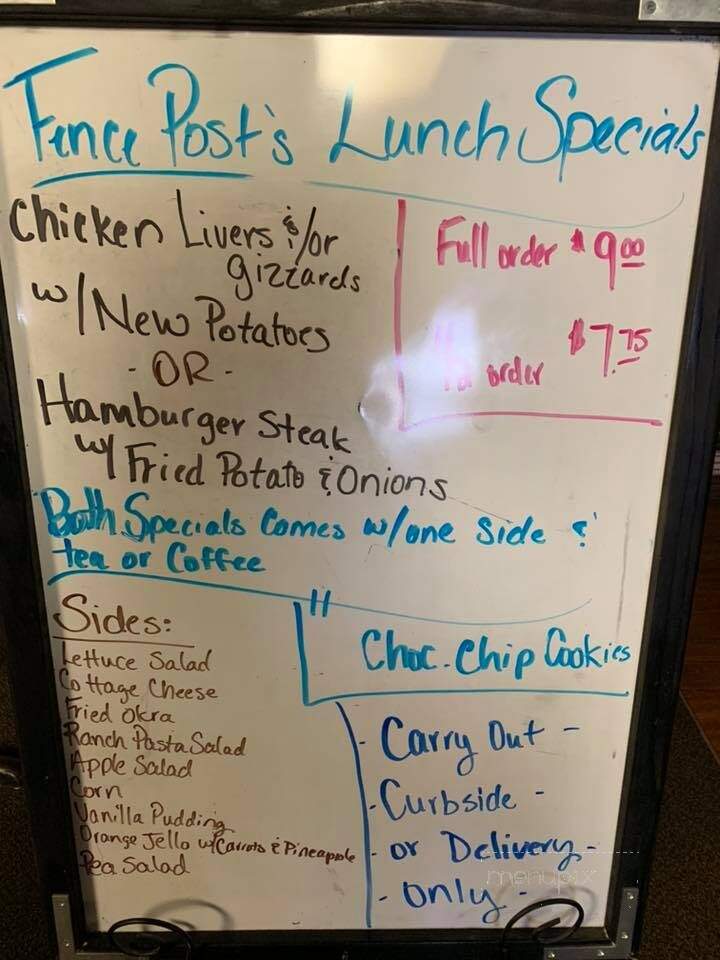 Fence Post's Lunch Specials
Chicken Livers &/or
gizzards
w/New Potatoes
- OR -
Hamburger Steak
w/ Fried Potato & Onions
Full order $9.00
order $7.75
Both Specials Comes w/one side &
tea or Coffee
Sides:
Lettuce Salad
Cottage Cheese
Fried Okra
Ranch Pasta Salad
Apple Salad
Corn
Vanilla Pudding
Orange Jello w/Carrots & Pineapple
Pea Salad
Choc. Chip Cookies
- Carry Out -
- Curbside -
- or Delivery -
- only -
menupix